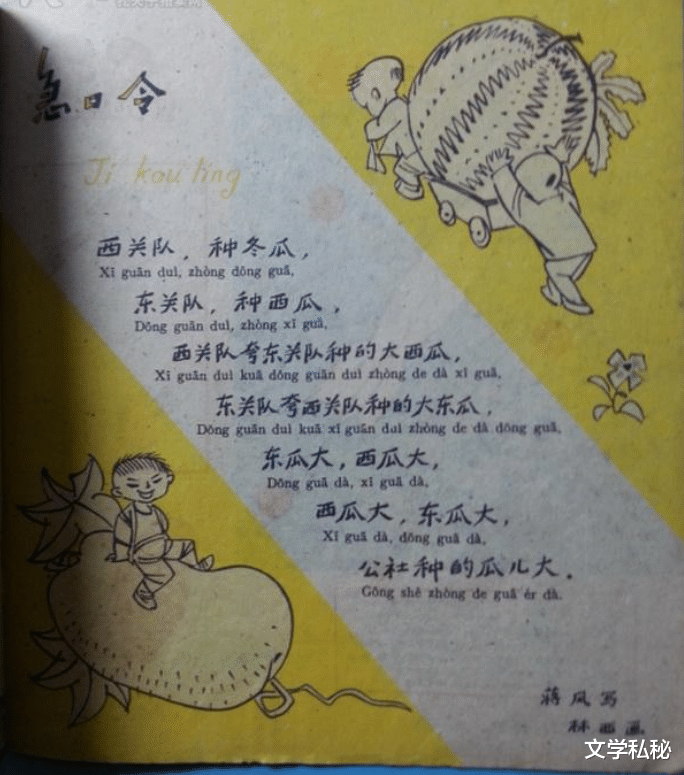 急口令
Jí kǒu lìng
西关队，种冬瓜，
Xī guān duì, zhòng dōng guā,
东关队，种西瓜，
Dōng guān duì, zhòng xī guā,
西关队夸东关队种的大西瓜，
Xī guān duì kuā dōng guān duì zhòng de dà xī guā,
东关队夸西关队种的大东瓜，
Dōng guān duì kuā xī guān duì zhòng de dà dōng guā,
东瓜大，西瓜大，
Dōng guā dà, xī guā dà,
西瓜大，东瓜大，
Xī guā dà, dōng guā dà,
公社种的瓜儿大．
Gōng shè zhòng de guā ér dà.
蒋风写
林西画
文学私秘